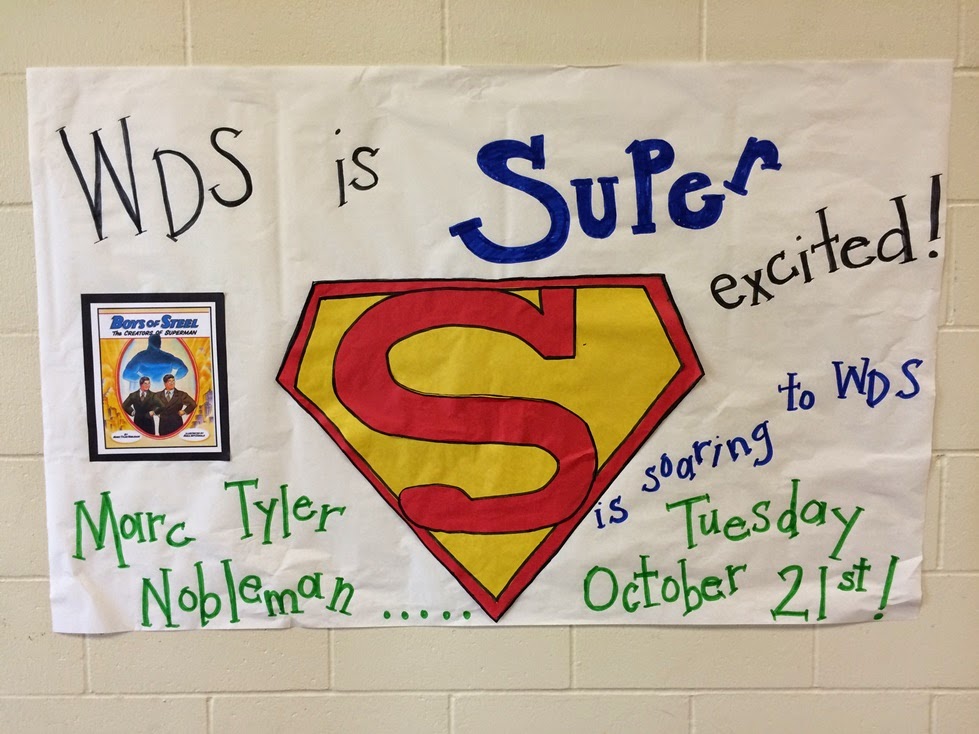 WDS is Super
excited!
BOYS OF STEEL
THE CREATORS OF SUPERMAN
S
Marc Tyler
Nobleman .....
is soaring to WDS
Tuesday
October 21st!